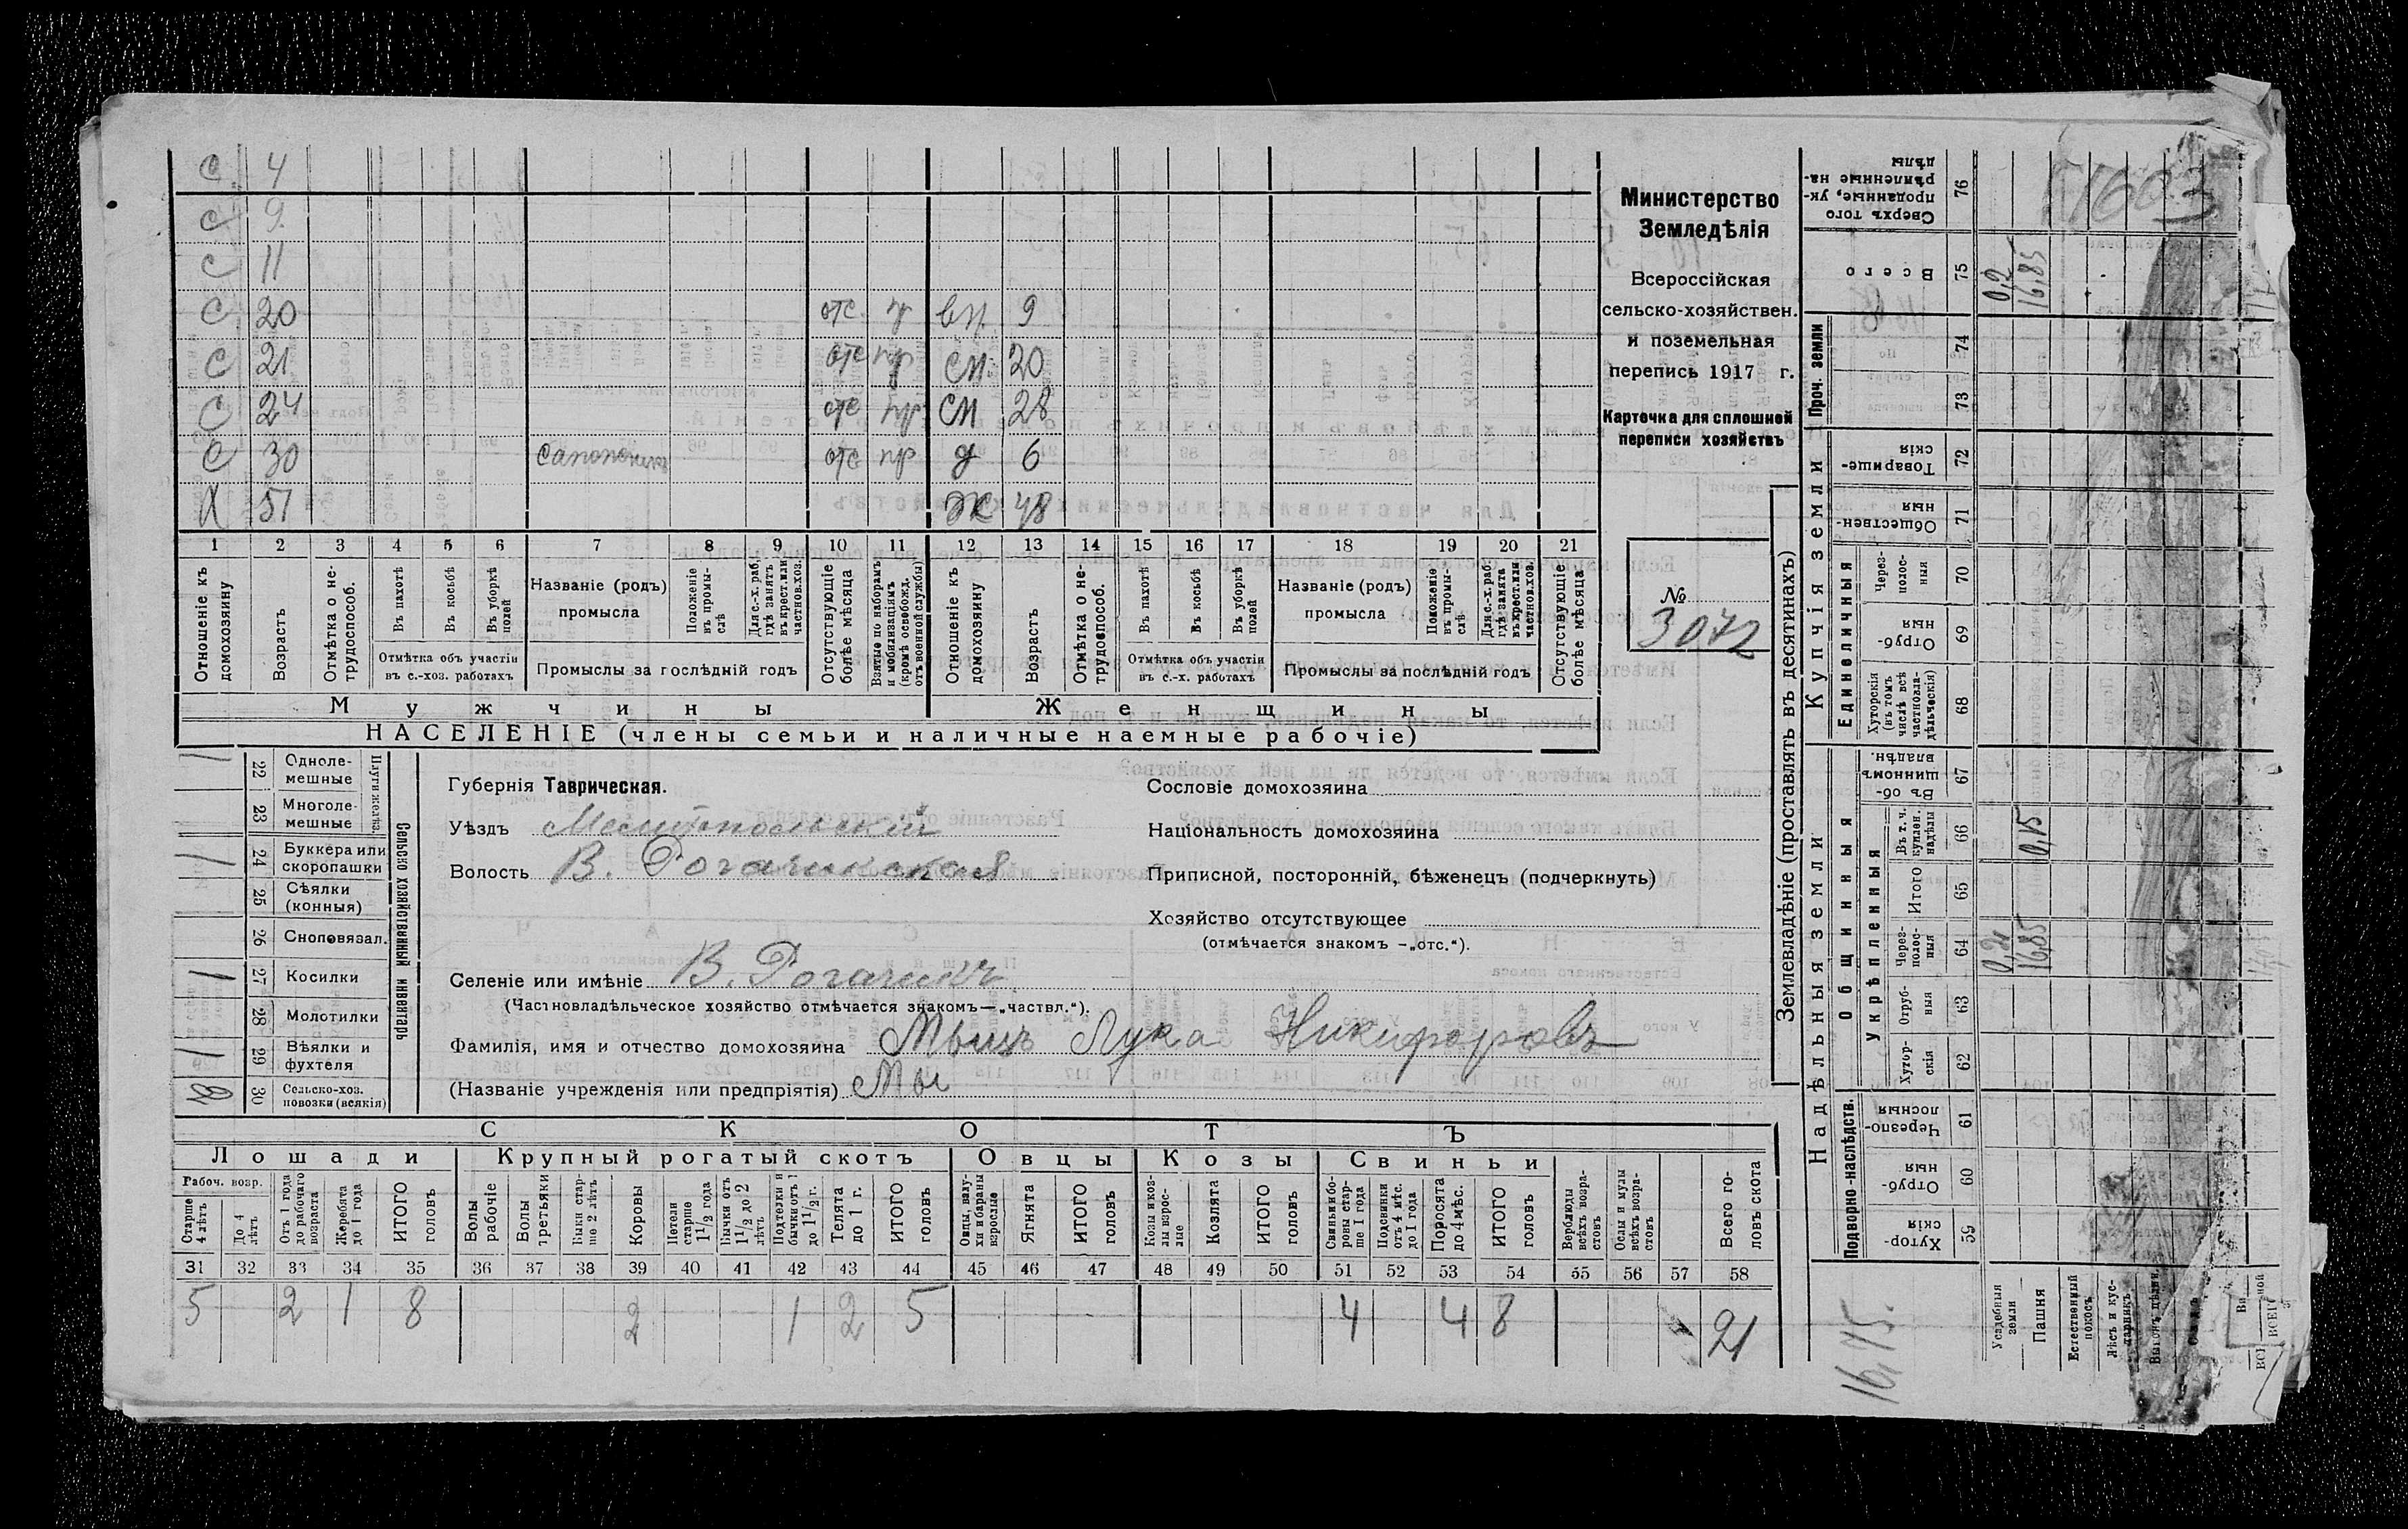 С 4
С 9
С 11
С 20 отс п вн. 9
С 21 отс пр сн. 20
С 24 отс пр сн 28
С 30 отс пр д 6
Х 51 Ж 48
1 2 3 4 5 6 7 8 9 10 11 12 13 14 15 16 17 18 19 20 21
Отношеніе къ домохозяину
Возрастъ
Отмѣтка о не-трудоспособ.
Въ пахотѣ
Въ косьбѣ
Въ уборкѣ полей
Отмѣтка объ участіи въ с.-хоз. работахъ
Названіе (родъ) промысла
Положеніе въ промы-слѣ
Для с.-х. раб, гдѣ занятъ въ крест. или частнов. хоз.
Промыслы за послѣдній годъ
Отсутствующіе болѣе мѣсяца
Взятые по наборамъ и мобилизаціямъ (кромѣ освобожд. отъ военной службы)
Отношеніе къ домохозяину
Возрастъ
Отмѣтка о не-трудоспособ.
Въ пахотѣ
Въ косьбѣ
Въ уборкѣ полей
Отмѣтка объ участіи въ с.-х. работахъ
Названіе (родъ) промысла
Положеніе въ промы-слѣ
Для с.-х. раб. гдѣ занята въ крест. или частнов. хоз.
Промыслы за послѣдній годъ
Отсутствующіе болѣе мѣсяца
Мужчины Женщины
НАСЕЛЕНІЕ (члены семьи и наличные наемные рабочіе)
Министерство
Земледѣлія
Всероссійская
сельско-хозяйствен.
и поземельная
перепись 1917 г.
Карточка для сплошной
переписи хозяйствъ
№
3072
1 22 Одноле-мешные
23 Многоле-мешные
1 24 Буккера или скоропашки
25 Сѣялки (конныя)
26 Сноповязал.
1 27 Косилки
28 Молотилки
1 29 Вѣялки и фухтеля
2 30 Сельско-хоз. повозки (всякія)
Сельско хозяйственный инвентарь
Губернія Таврическая.
Уѣздъ Мелитопольскій
Волость В. Рогачикская
Сословіе домохозяина
Національность домохозяина
Приписной, посторонній, бѣженецъ (подчеркнуть)
Хозяйство отсутствующее
(отмѣчается знакомъ —„отс.“).
Селеніе или имѣніе В. Рогачикъ
(Частновладѣльческое хозяйство отмѣчается знакомъ—„частвл.“).
Фамилія, имя и отчество домохозяина Мыць Лука Никифоровъ
(Названіе учрежденія или предпріятія) Мы
СКОТЪ
Лошади Крупный рогатый скотъ Овцы Козы Свиньи
Рабоч. возр.
Старше 4 лѣтъ
До 4 лѣтъ
Отъ 1 года до рабочаго возраста
Жеребята до 1 года
ИТОГО головъ
Волы рабочіе
Волы третьяки
Быки стар-ше 2 лѣтъ
Коровы
Нетели старше 1 1/2 года
Бычки отъ 1 1/2 до 2 лѣтъ
Подтелки и бычки отъ 1 до 1 1/2 г.
Телята до 1 г.
ИТОГО головъ
Овцы, валу-хи и бараны взрослые
Ягнята
ИТОГО головъ
Козы и коз-лы взрос-лые
Козлята
ИТОГО головъ
Свиньи и бо-ровы стар-ше 1 года
Подсвинки отъ 4 мѣс. до 1 года
Поросята до 4 мѣс.
ИТОГО головъ
Верблюды всѣхъ возра-стовъ
Ослы и мулы всѣхъ возра-стовъ
Всего го-ловъ скота
31 32 33 34 35 36 37 38 39 40 41 42 43 44 45 46 47 48 49 50 51 52 53 54 55 56 57 58
5 2 1 8 2 1 2 5 4 4 8 21
Землевладѣніе (проставлять въ десятинахъ)
Надѣльныя земли Купчія земли Проч. земли
Подворно-наслѣдств. Общинныя Единоличныя
Укрѣпленныя
Хутор-скія 59
Отруб-ныя 60
Черезпо-лосныя 61
Хутор-скія 62
Отруб-ныя 63
Через-полос-ныя 64
Итого 65
Въ т. ч. куплен. надѣлы 66
Въ об-щинномъ владѣн. 67
Хуторскія (въ томъ числѣ всѣ частновла-дѣльческія) 68
Отруб-ныя 69
Через-полос-ныя 70
Обществен-ныя 71
Товарище-скія 72
73
74
Всего 75
Сверхъ того проданные, ук-рѣпленные на-дѣлы 76
Усадебныя земли 0,2 0,2
Пашня 16,85 0,15 16,85
Естественный покосъ
Лѣсъ и кус-тарникъ
16,75.